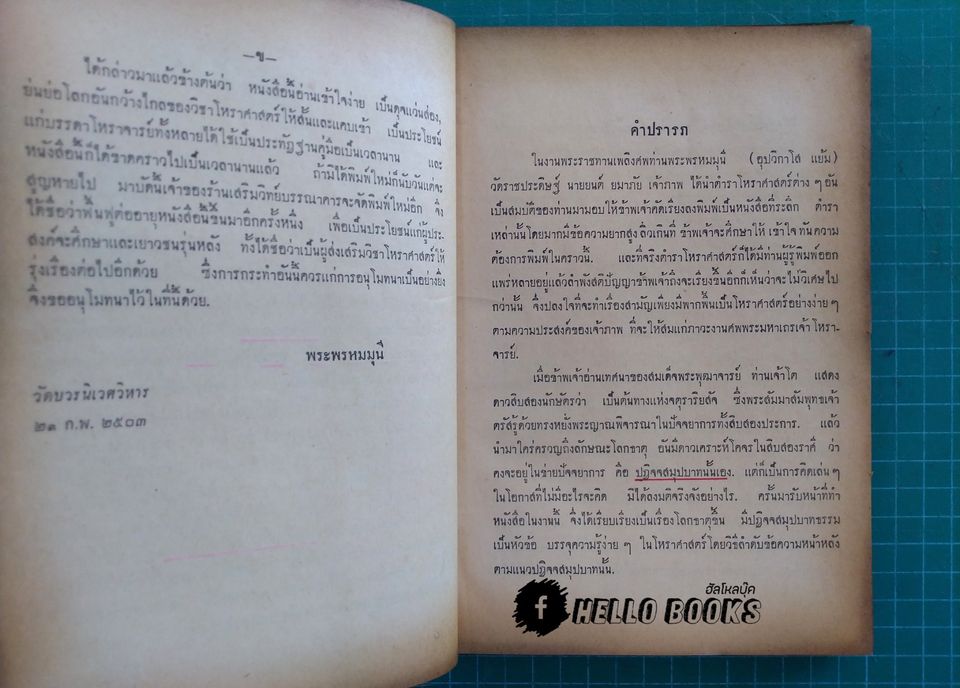 —ข—
ได้กล่าวมาแล้วข้างต้นว่า หนังสือนี้อ่านเข้าใจง่าย เป็นดุจแว่นส่อง,
ย่นย่อโลกอันกว้างไกลของวิชาโหราศาสตร์ให้สั้นและแคบเข้า เป็นประโยชน์
แก่บรรดาโหราจารย์ทั้งหลายได้ใช้เป็นประทัฏฐานคู่มือเป็นเวลานาน และ
หนังสือนี้ก็ได้ขาดคราวไปเป็นเวลานานแล้ว ถ้ามิได้พิมพ์ใหม่ก็นับวันแต่จะ
สูญหายไป มาบัดนี้เจ้าของร้านเสริมวิทย์บรรณาคารจะจัดพิมพ์ใหม่อีก จึง
ได้ชื่อว่าฟื้นฟูต่ออายุหนังสือนี้ขึ้นมาอีกครั้งหนึ่ง เพื่อเป็นประโยชน์แก่ผู้ประ-
สงค์จะศึกษาและเยาวชนรุ่นหลัง ทั้งได้ชื่อว่าเป็นผู้ส่งเสริมวิชาโหราศาสตร์ให้
รุ่งเรืองต่อไปอีกด้วย ซึ่งการกระทำอันนี้ควรแก่การอนุโมทนาเป็นอย่างยิ่ง
จึงขออนุโมทนาไว้ในที่นี้ด้วย.
พระพรหมมุนี
วัดบวรนิเวศวิหาร
๒๑ ก.พ. ๒๕๐๓
คำปรารภ
ในงานพระราชทานเพลิงศพท่านพระพรหมมุนี (อุปวิกาโส แย้ม)
วัดราชประดิษฐ์ นายยนต์ ยมาภัย เจ้าภาพ ได้นำตำราโหราศาสตร์ต่าง ๆ อัน
เป็นสมบัติของท่านมามอบให้ข้าพเจ้าคัดเรียงลงพิมพ์เป็นหนังสือที่ระลึก ตำรา
เหล่านั้นโดยมากมีข้อความยากสูง ลิวเกินที่ ข้าพเจ้าจะศึกษาให้ เข้าใจ ทันความ
ต้องการพิมพ์ในคราวนี้. และที่จริงตำราโหราศาสตร์ก็ได้มีท่านผู้รู้พิมพ์ออก
แพร่หลายอยู่แล้วลำพังสติปัญญาข้าพเจ้าถึงจะเรียงขึ้นอีกก็เห็นว่าจะไม่วิเศษไป
กว่านั้น จึงปลงใจที่จะทำเรื่องสามัญเพียงมีพากพื้นเป็นโหราศาสตร์อย่างง่าย ๆ
ตามความประสงค์ของเจ้าภาพ ที่จะให้สมแก่ภาวะงานศพพระมหาเกรเจ้าโหรา-
จารย์.
เมื่อข้าพเจ้าอ่านเทศนาของสมเด็จพระพุฒาจารย์ ท่านเจ้าโต แสดง
ดาวสิบสองนักษัตรว่า เป็นต้นทางแห่งจตุราริยสัจ ซึ่งพระสัมมาสัมพุทธเจ้า
ตรัสรู้ด้วยทรงหยั่งพระญาณพิจารณาในปัจจยาการทั้งสิบสองประการ. แล้ว
นำมาใคร่ครวญถึงลักษณะโลกธาตุ อันมีดาวเคราะห์โคจรในสิบสองราศี ว่า
คงจะอยู่ในข่ายปัจจยาการ คือ ปฏิจจสมุปบาทนั้นเอง. แต่ก็เป็นการคิดเล่น ๆ
ในโอกาสที่ไม่มีอะไรจะคิด มิได้ลงมติจริงจังอย่างไร. ครั้นมารับหน้าที่ทำ
หนังสือในงานนี้ จึงได้เรียบเรียงเป็นเรื่องโลกธาตุขึ้น มีปฏิจจสมุปบาทธรรม
เป็นหัวข้อ บรรจุความรู้ง่าย ๆ ในโหราศาสตร์โดยวิธีลำดับข้อความหน้าหลัง
ตามแนวปฏิจจสมุปบาทนั้น.
ฮัลโหลบุ๊ค
f HELLO BOOKS